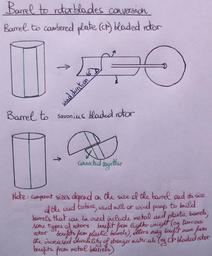 Barrel to rotorblades conversion
Barrel to cambered plate (CP) bladed rotor
wind direction
Barrel to savonius bladed rotor
connected together
Note: component sizes depend on the size of the barrel and the size
of the wind turbine, wind mill or wind pump to build
barrels that can be used include metal and plastic barrels,
some types of rotors benefit from lighter weight (eg savonius
rotor benefits from plastic barrels), others may benefit more from
the increased durability of stronger materials (eg CP bladed rotor
benefits from metal barrels)